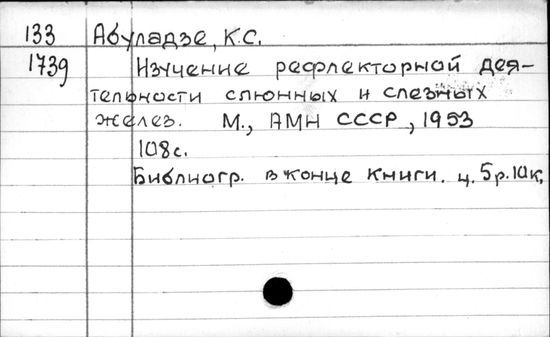 133 Абуладзе, К.С.
1739 Изучение рефлекторной дея-
тельности слюнных и слезных
желез. М., АМН СССР, 1953
108с.
Библиогр. в конце книги. ц. 5р.10к.